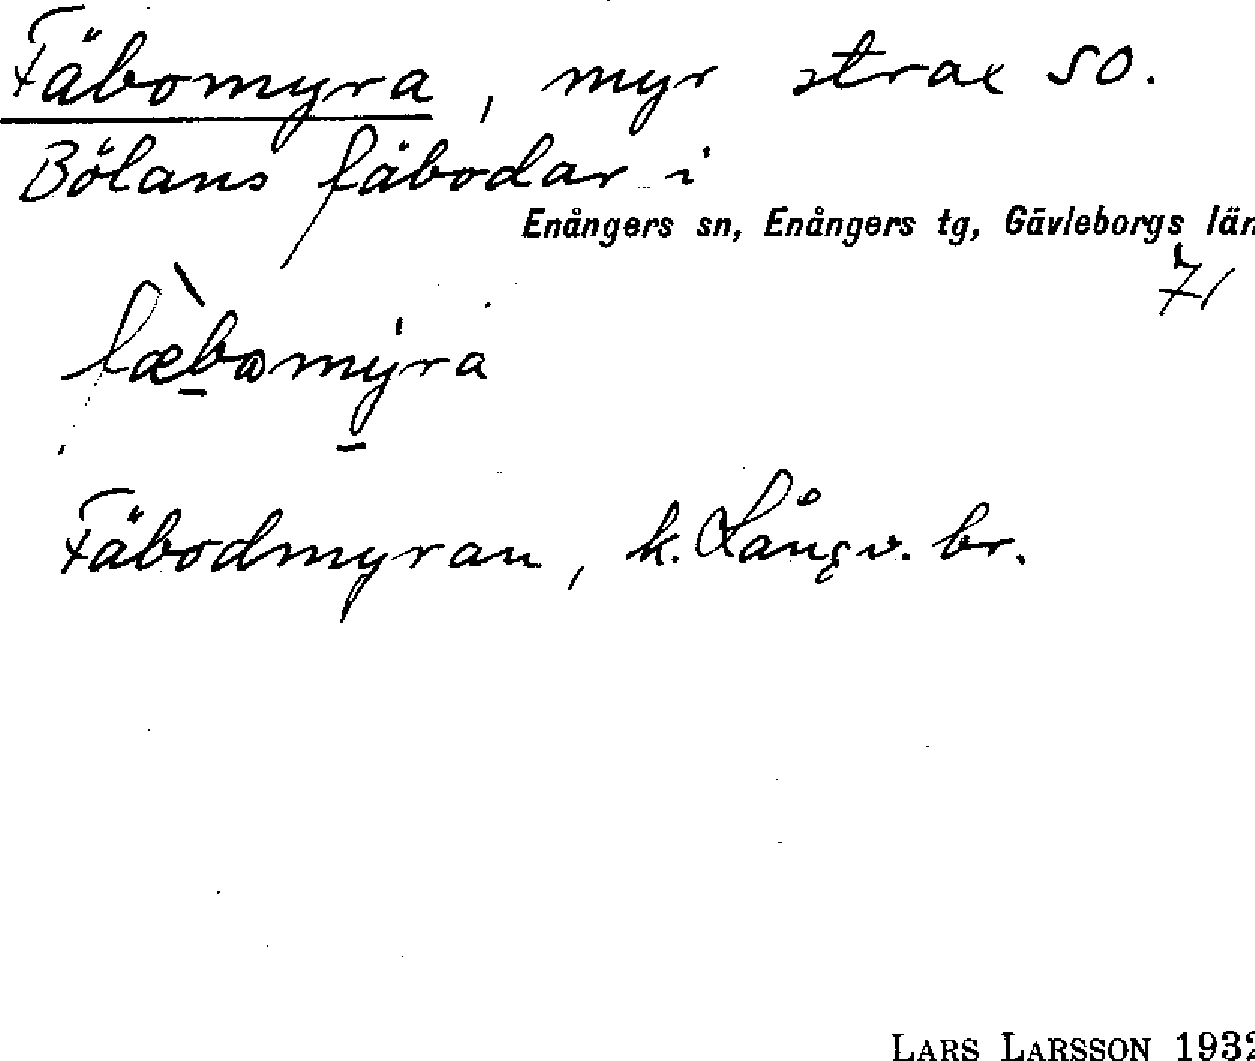 Fäbomyra, myr strax SO.
Bölans fäbodar i
Enångers sn, Enångers tg, Gävleborgs län
fæbomyra
Fäbodmyran, k. Långv. br.
LARS LARSSON 1932